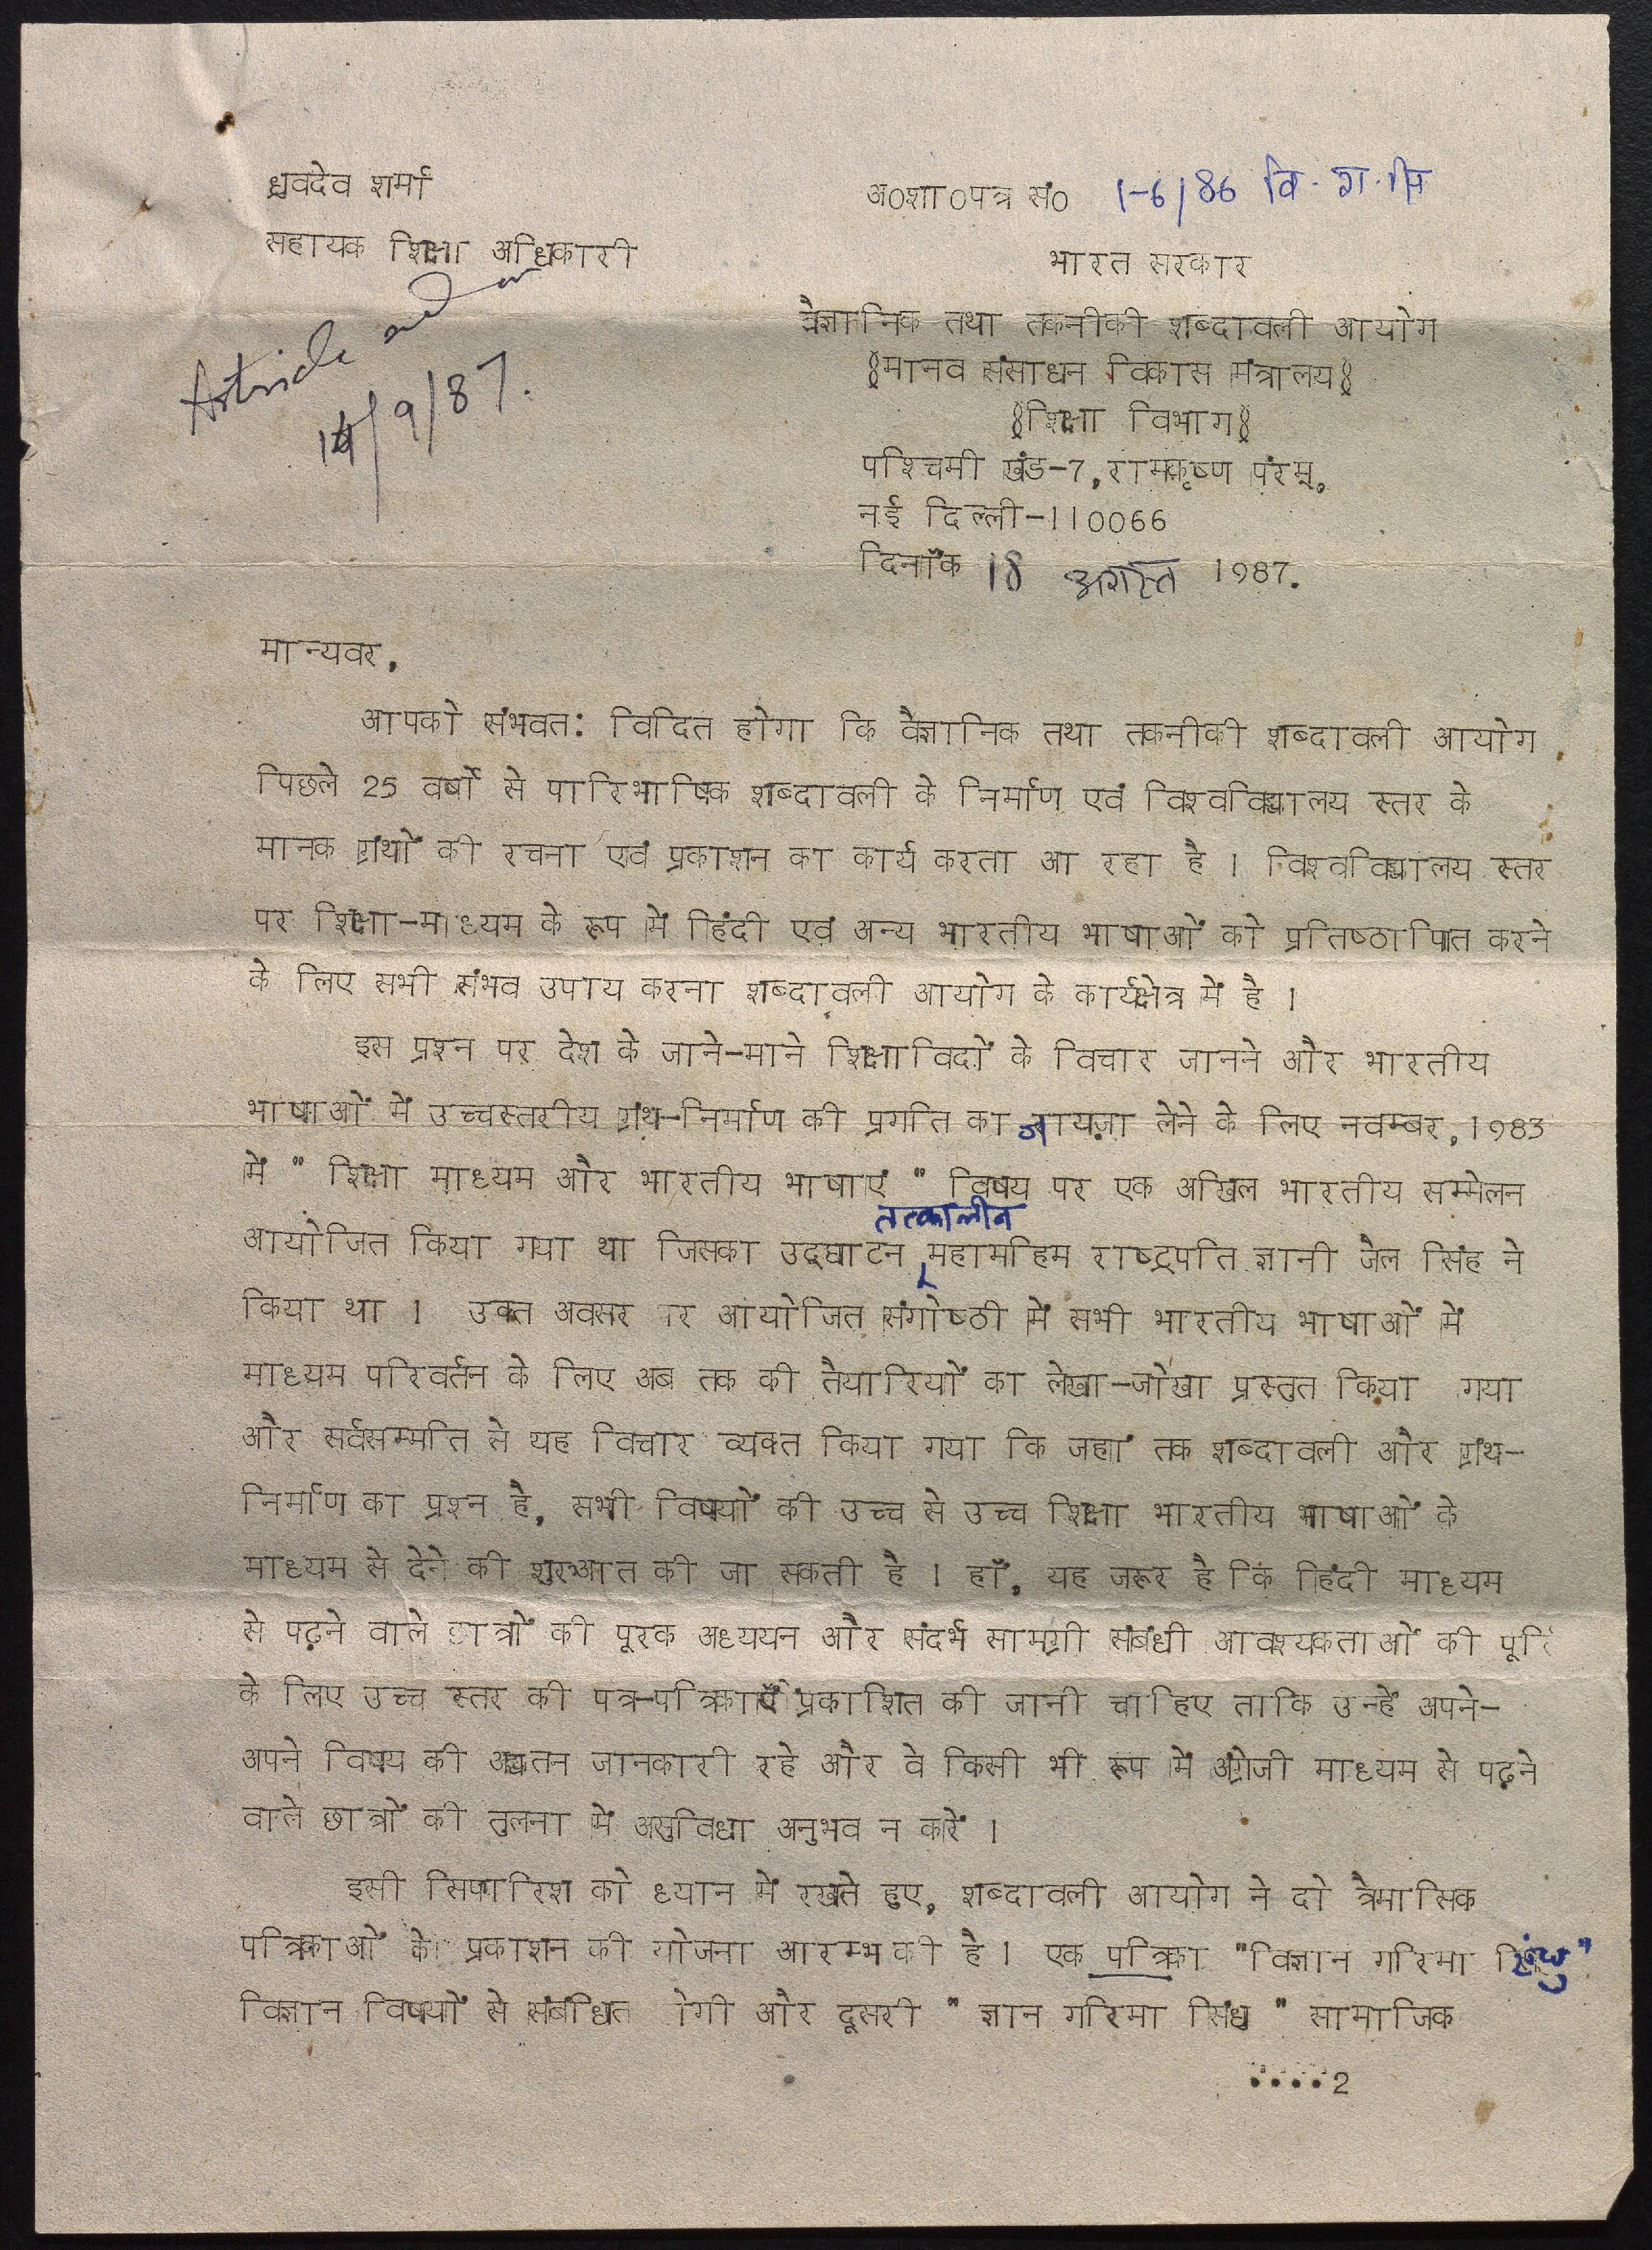 ध्रुवदेव शर्मा
सहायक शिक्षा अधिकारी
Article send on
14/9/87.
अ०शा०पत्र सं० 1-6/86 वि. ग.
भारत सरकार
वैज्ञानिक तथा तकनीकी शब्दावली आयोग
(मानव संसाधन विकास मंत्रालय)
(शिक्षा विभाग)
पश्चिमी खंड-7, रामकृष्ण पुरम्,
नई दिल्ली-110066
दिनाँक 18 अगस्त 1987.
मान्यवर,
आपको संभवत: विदित होगा कि वैज्ञानिक तथा तकनीकी शब्दावली आयोग
पिछले 25 वर्षों से पारिभाषिक शब्दावली के निर्माण एवं विश्वविद्यालय स्तर के
मानक ग्रंथों की रचना एवं प्रकाशन का कार्य करता आ रहा है । विश्वविद्यालय स्तर
पर शिक्षा-माध्यम के रूप में हिंदी एवं अन्य भारतीय भाषाओं को प्रतिष्ठापित करने
के लिए सभी संभव उपाय करना शब्दावली आयोग के कार्यक्षेत्र में है ।
इस प्रश्न पर देश के जाने-माने शिक्षाविदों के विचार जानने और भारतीय
भाषाओं में उच्चस्तरीय ग्रंथ-निर्माण की प्रगति का जायज़ा लेने के लिए नवम्बर, 1983
में " शिक्षा माध्यम और भारतीय भाषाएं " विषय पर एक अखिल भारतीय सम्मेलन
आयोजित किया गया था जिसका उद्घाटन तत्कालीन महामहिम राष्ट्रपति ज्ञानी जेल सिंह ने
किया था । उक्त अवसर पर आयोजित संगोष्ठी में सभी भारतीय भाषाओं में
माध्यम परिवर्तन के लिए अब तक की तैयारियों का लेखा-जोखा प्रस्तुत किया गया
और सर्वसम्मति से यह विचार व्यक्त किया गया कि जहां तक शब्दावली और ग्रंथ-
निर्माण का प्रश्न है, सभी विषयों की उच्च से उच्च शिक्षा भारतीय भाषाओं के
माध्यम से देने की शुरुआत की जा सकती है । हाँ, यह जरूर है कि हिंदी माध्यम
से पढ़ने वाले छात्रों की पूरक अध्ययन और संदर्भ सामग्री संबंधी आवश्यकताओं की पूर्ति
के लिए उच्च स्तर की पत्र-पत्रिकाएँ प्रकाशित की जानी चाहिए ताकि उन्हें अपने-
अपने विषय की अद्यतन जानकारी रहे और वे किसी भी रूप में अंग्रेजी माध्यम से पढ़ने
वाले छात्रों की तुलना में असुविधा अनुभव न करें ।
इसी सिफारिश को ध्यान में रखते हुए, शब्दावली आयोग ने दो त्रैमासिक
पत्रिकाओं के प्रकाशन की योजना आरम्भ की है । एक पत्रिका "विज्ञान गरिमा सिंधु"
विज्ञान विषयों से संबंधित होगी और दूसरी " ज्ञान गरिमा सिंधु " सामाजिक
....2